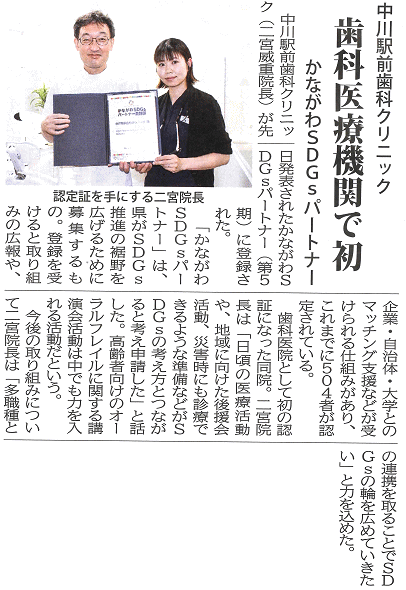 中川駅前歯科クリニック
歯科医療機関で初
かながわSDGsパートナー
中川駅前歯科クリニッ
ク（二宮威重院長）が先
日発表されたかながわS
DGsパートナー（第5
期）に登録さ
れた。
「かながわ
SDGsパー
トナー」は、
県がSDGs
推進の裾野を
広げるために
募集するも
の。登録を受
けると取り組
みの広報や、
かながわSDGs
認定証を手にする二宮院長
企業・自治体・大学との
マッチング支援などが受
けられる仕組みがあり、
これまでに504者が認
定されている。
歯科医院として初の認
証になった同院。二宮院
長は「日頃の医療活動
や、地域に向けた後援会
活動、災害時にも診療で
きるような準備などがS
DGsの考え方とつなが
ると考え申請した」と話
した。高齢者向けのオー
ラルフレイルに関する講
演会活動は中でも力を入
れる活動だという。
今後の取り組みについ
て二宮院長は「多職種と
の連携を取ることでSD
Gsの輪を広めていきた
い」と力を込めた。